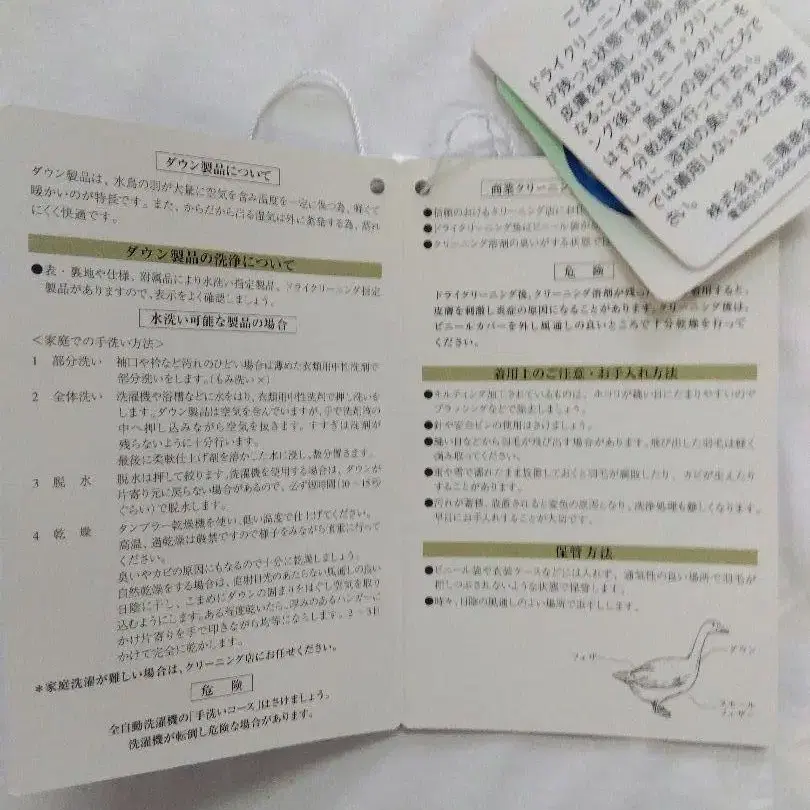 ダウン製品について
ダウン製品は、水鳥の羽が大量に空気を含み温度を一定に保つ為、軽くて
暖かいのが特長です。また、からだから出る湿気は外に発散する為、蒸れ
にくく快適です。
ダウン製品の洗浄について
●表・裏地や仕様、附属品により水洗い指定製品、ドライクリーニング指定
製品がありますので、表示をよく確認しましょう。
水洗い可能な製品の場合
＜家庭での手洗い方法＞
1 部分洗い 袖口や衿など汚れのひどい場合は薄めた衣類用中性洗剤で
部分洗いをします。(もみ洗い×)
2 全体洗い 洗濯機や浴槽などに水をはり、衣類用中性洗剤で押し洗いを
します。ダウン製品は空気を含んでいますが、手で洗剤液の
中へ押し込みながら空気を抜きます。すすぎは洗剤が
残らないように十分行います。
最後に柔軟仕上げ剤を溶かした水に浸し、数分置きます。
3 脱 水 脱水は押して絞ります。洗濯機を使用する場合は、ダウンが
片寄り元に戻らない場合があるので、必ず短時間(10～15秒
ぐらい)で脱水します。
4 乾 燥 タンブラー乾燥機を使い、低い温度で仕上げてください。
高温、過乾燥は厳禁ですので様子をみながら慎重に行って
ください。
臭いやカビの原因にもなるので十分に乾燥しましょう。
自然乾燥をする場合は、直射日光のあたらない風通しの良い
日陰に干し、こまめにダウンの固まりをほぐし空気を取り
込むようにします。ある程度乾いたら、厚みのあるハンガーに
かけ片寄りを手で叩きながら均等にならします。2～3日
かけて完全に乾かします。
＊家庭洗濯が難しい場合は、クリーニング店にお任せください。
危 険
全自動洗濯機の「手洗いコース」はさけましょう。
洗濯機が転倒し危険な場合があります。
商業クリーニン
●信頼のおけるクリーニング店にお任
●ドライクリーニング後はビニール袋か
●クリーニング溶剤の臭いがする状態で
危 険
ドライクリーニング後、クリーニング溶剤が残った 着用すると、
皮膚を刺激し炎症の原因になることがあります。クリーニング後は、
ビニールカバーを外し風通しの良いところで十分乾燥を行ってく
ださい。
着用上のご注意・お手入れ方法
●キルティング加工されているものは、ホコリが縫い目にたまりやすいので
ブラッシングなどで除去しましょう。
●針や安全ピンの使用はさけましょう。
●縫い目などから羽毛が飛び出す場合があります。飛び出した羽毛は軽く
摘み取ってください。
●雨や雪で濡れたまま放置しておくと羽毛が腐敗したり、カビが生えたり
することがあります。
●汚れが蓄積、放置されると変色の原因となり、洗浄処理も難しくなります。
早目にお手入れすることが大切です。
保管方法
●ビニール袋や衣装ケースなどには入れず、通気性の良い場所で羽毛が
押しつぶされないような状態で保管します。
●時々、日陰の風通しのよい場所で陰干しします。
フェザー
ダウン
スモール
フェザー
ドライクリーニン
が残った状態で着用
皮膚を刺激し、炎症の原
なることがあります。クリーニ
ング後は、ビニールカバーを
はずし、風通しの良いところで
十分乾燥を行って下さい。
特に、溶剤の臭いがする状態
では着用しないようご注意下
さい。
株式会社 三陽商会